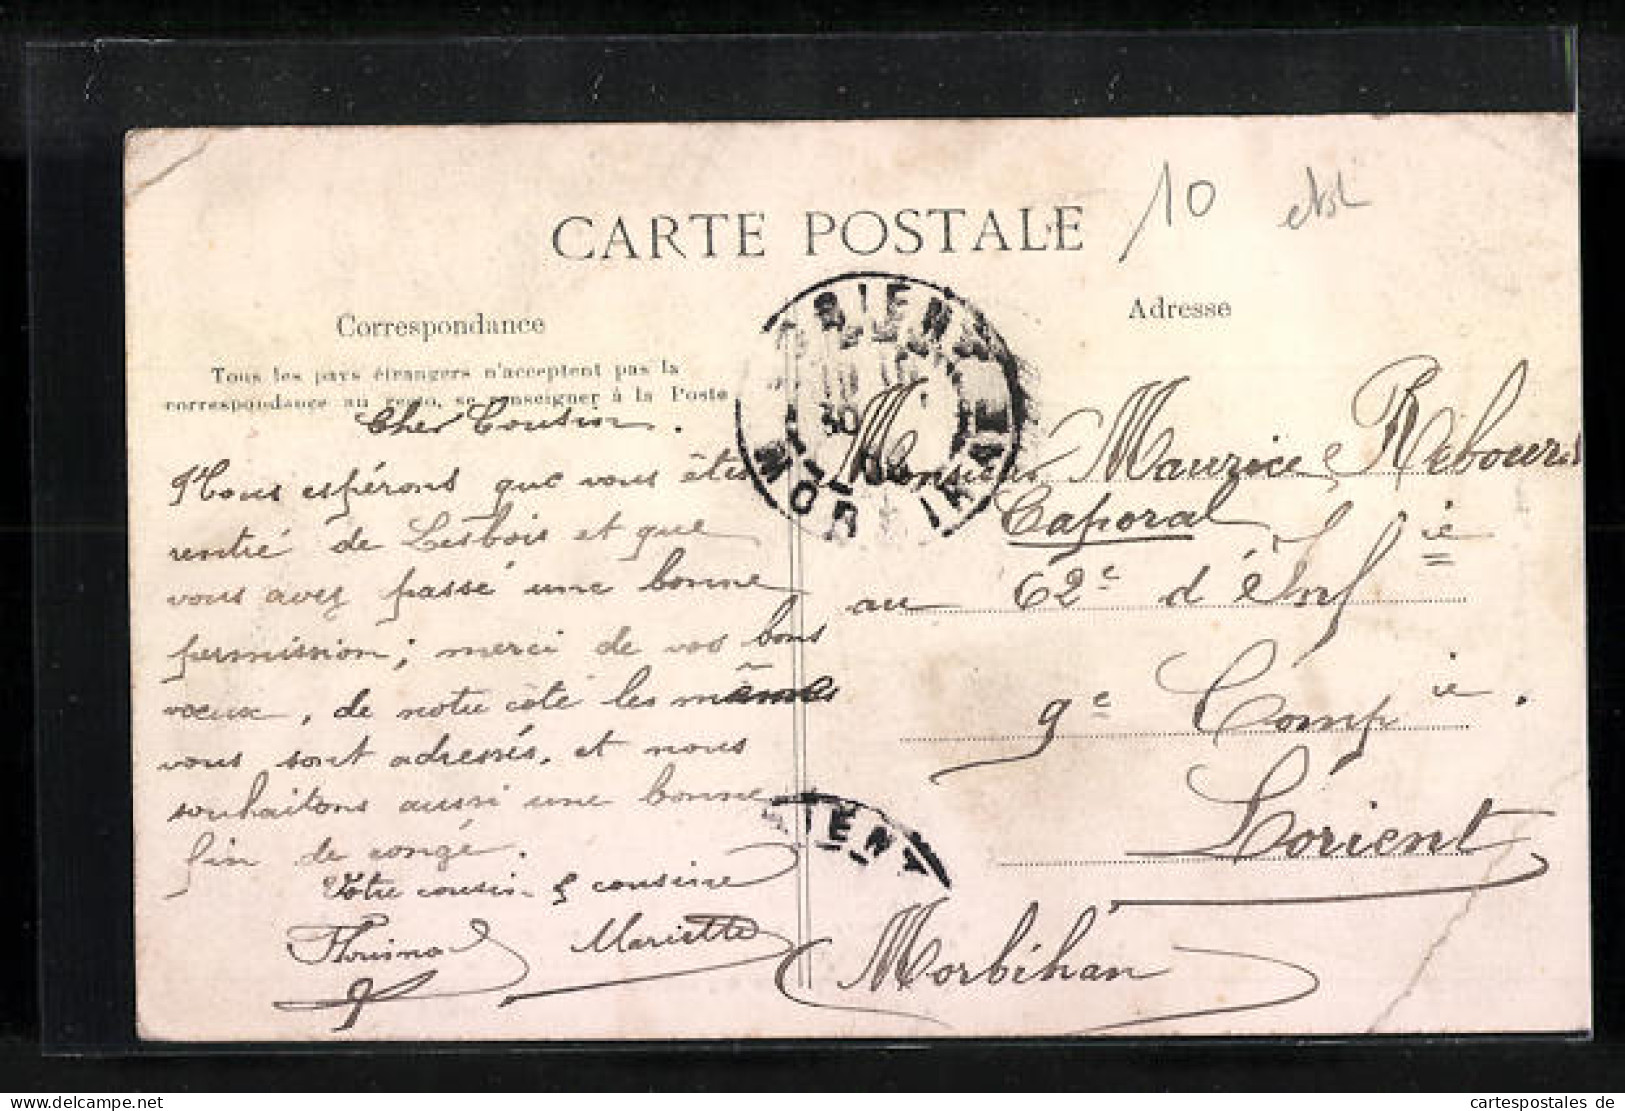 CARTE POSTALE
10
Correspondance
Tous les pays étrangers n'acceptent pas la
correspondance au recto, se renseigner à la Poste
Cher Cousin.
Nous espérons que vous êtes
rentré de Lesbois et que
vous avez passé une bonne
permission; merci de vos bons
vœux, de notre côté les mêmes
vous sont adressés, et nous
souhaitons aussi une bonne
fin de congé.
Votre cousin & cousine
Mariette
Adresse
Monsieur Maurice Rebours
Caporal
au 62e d'Infie
9e Compie.
Lorient
Morbihan
LORIENT
30
MORBIHAN
RIENT
www.cartespostales.de
cartespostales de